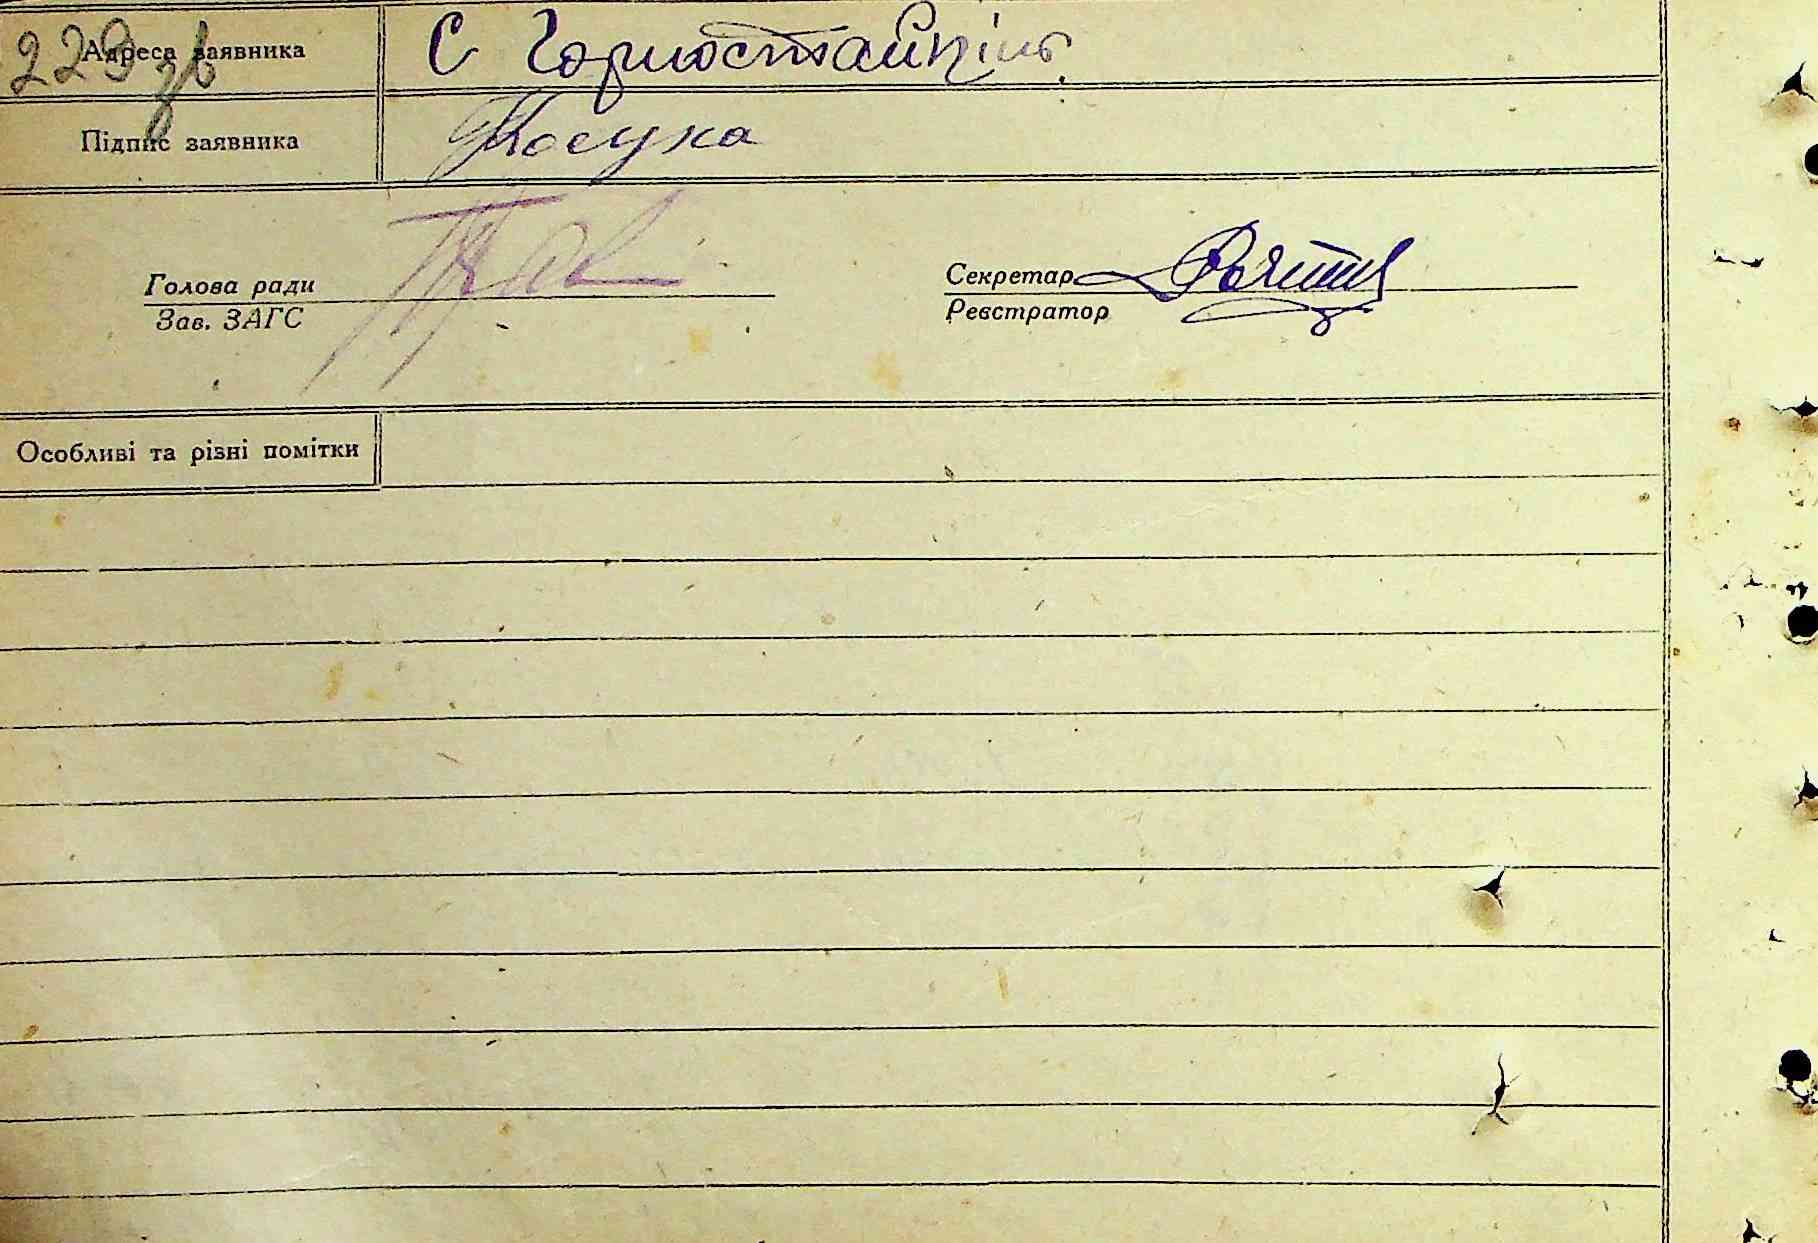 229 зв
Адреса заявника С Горностайпіль
Підпис заявника Косука
Голова ради
Зав. ЗАГС
Секретар
Реєстратор
Особливі та різні помітки